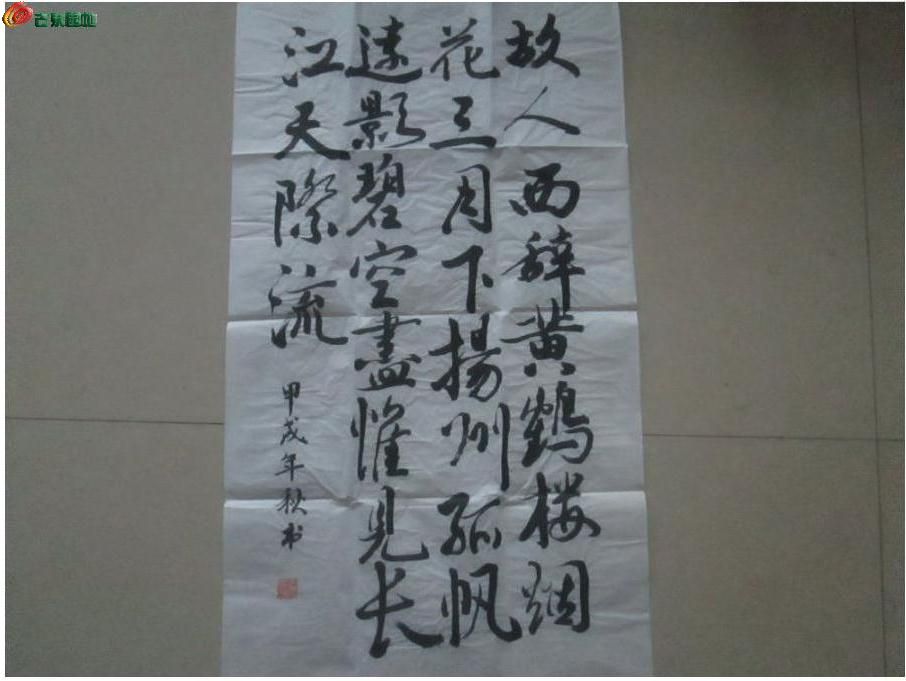 故人西辞黄鶴楼烟
花三月下揚州孤帆
遠影碧空盡惟見长
江天際流
甲戌年秋书